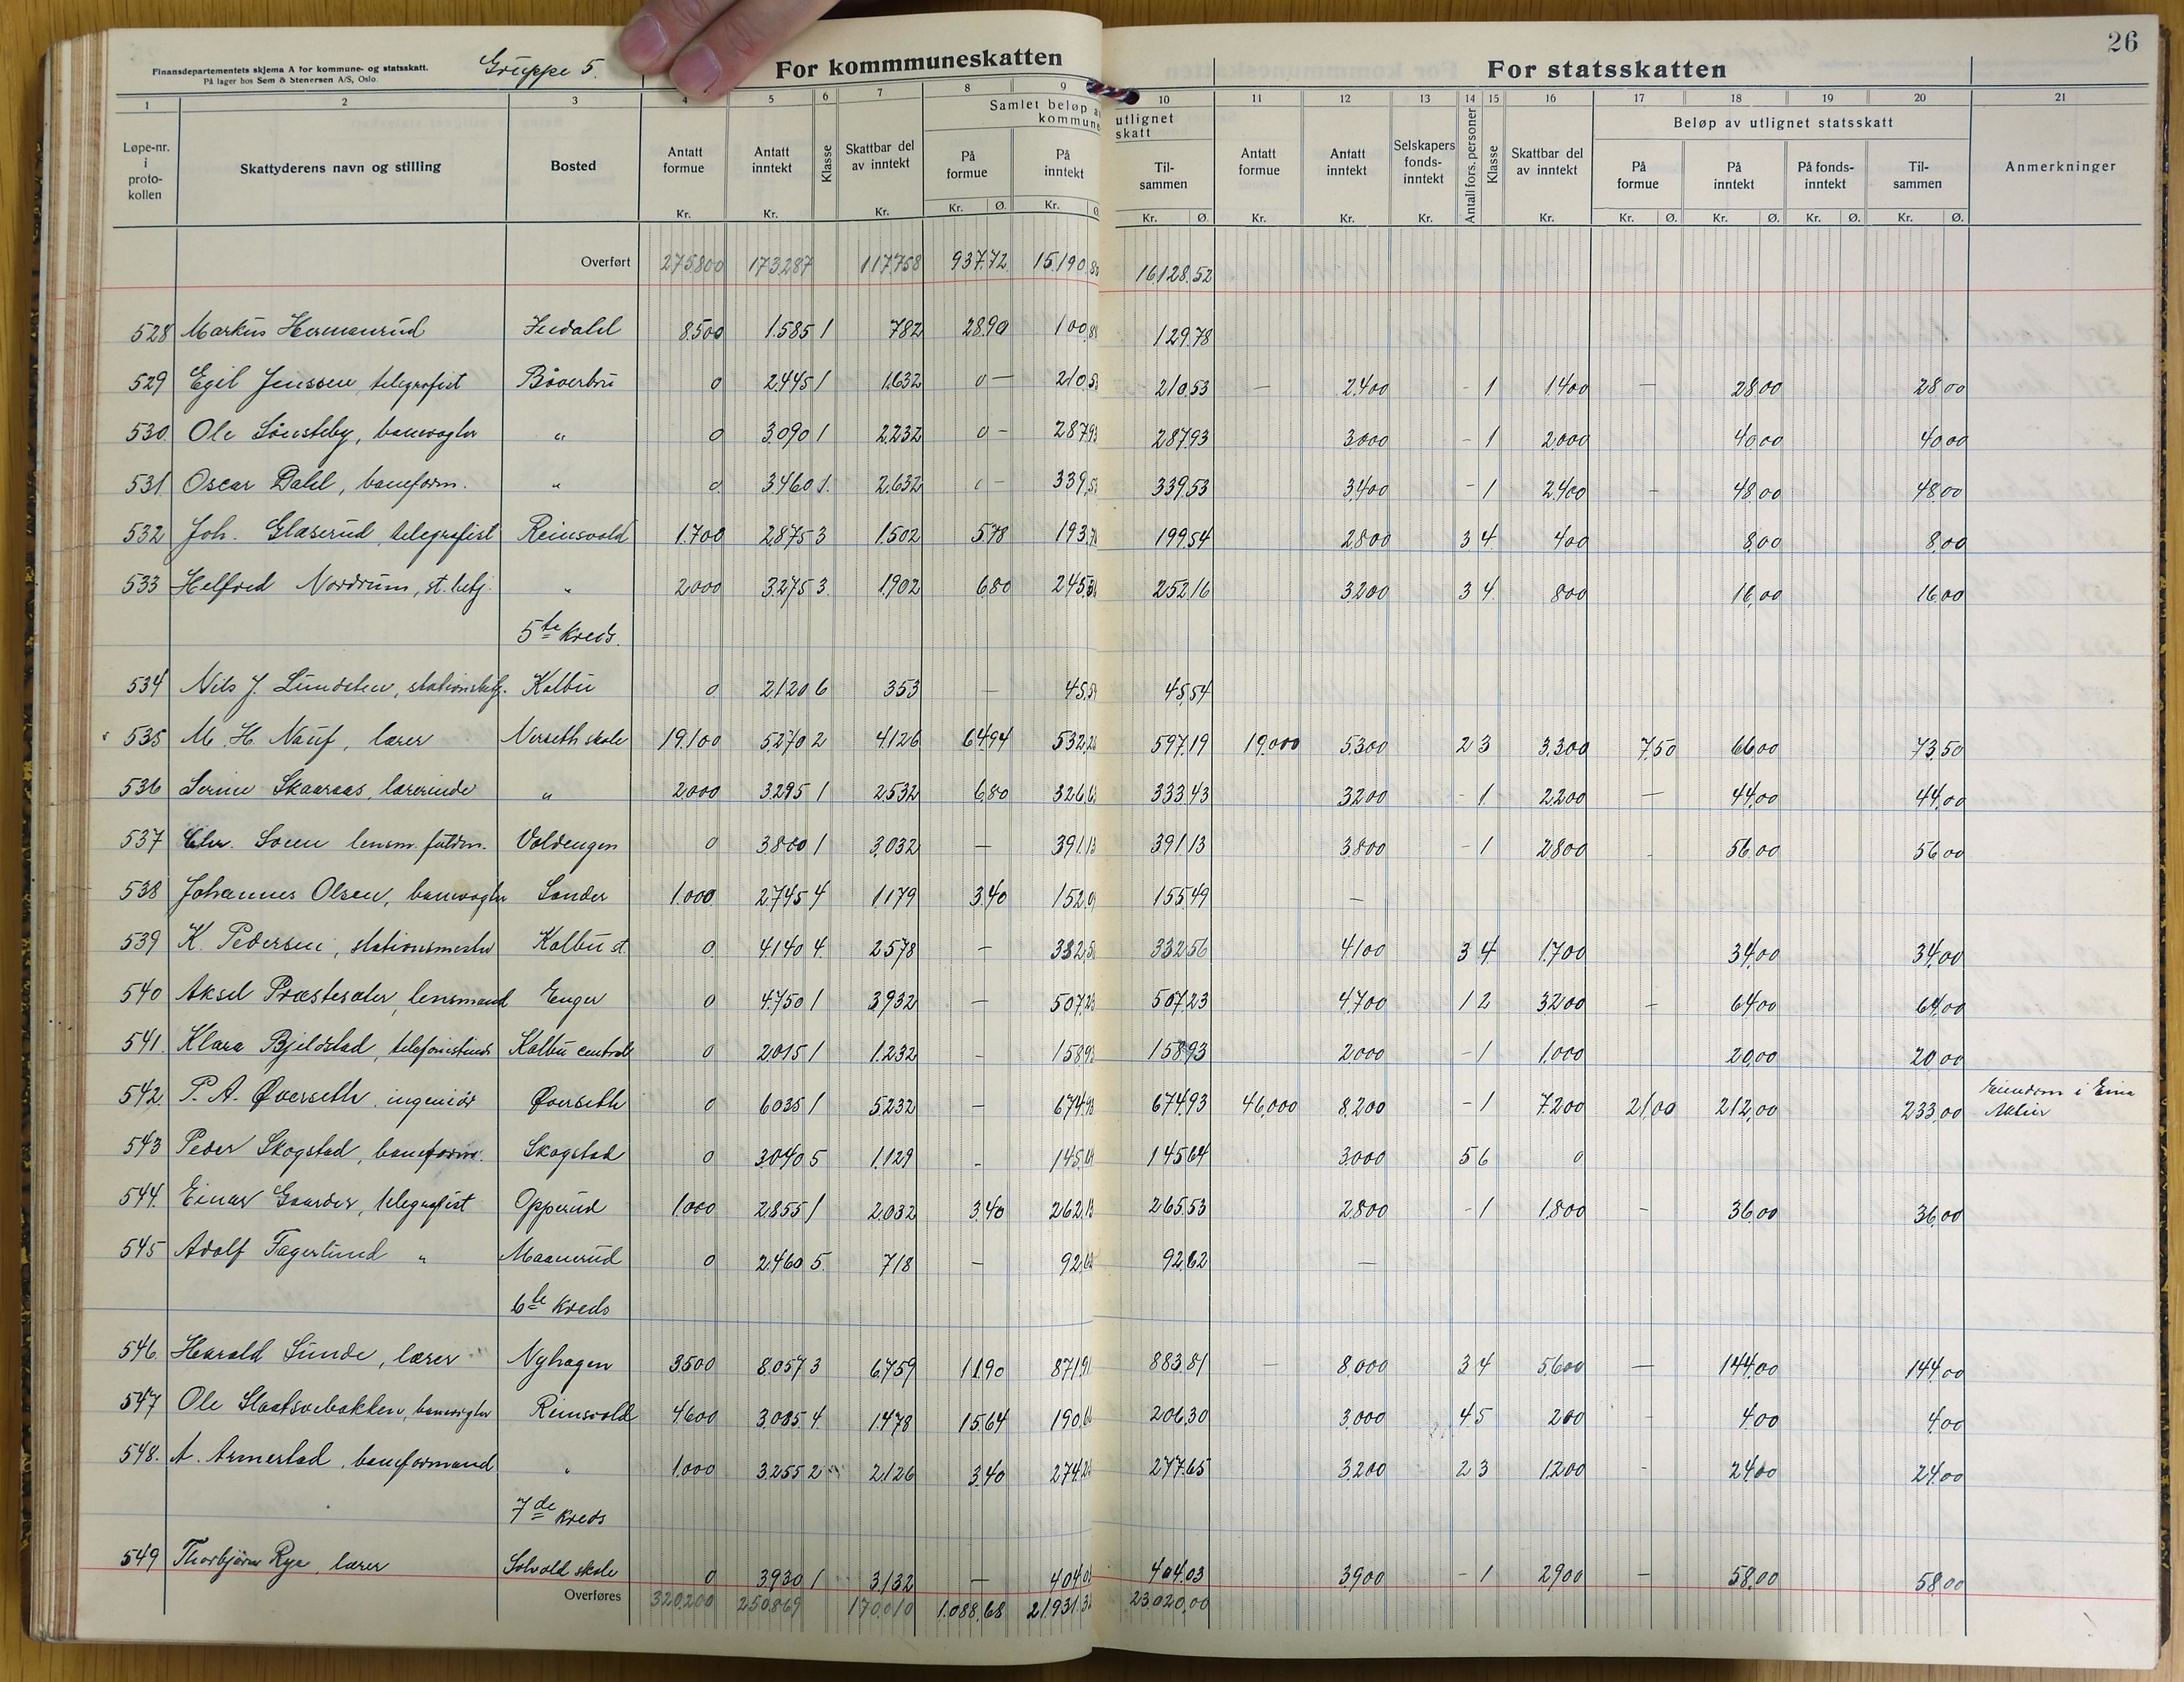 26
Finansdepartementets skjema A for kommune- og statsskatt.
På lager hos Sem & Stenersen A/S, Oslo.
Gruppe 5.
For kommmuneskatten
For statsskatten
1 2 3 4 5 6 7 8 9 10 11 12 13 14 15 16 17 18 19 20 21
Løpe-nr. i proto-kollen Skattyderens navn og stilling Bosted Antatt formue Kr. Antatt inntekt Kr. Klasse Skattbar del av inntekt Kr. Samlet beløp a kommune utlignet skatt På formue Kr. Ø. På inntekt Kr. Ø. Til-sammen Kr. Ø. Antatt formue Kr. Antatt inntekt Kr. Selskapers fonds-inntekt Kr. Antall fors. personer Klasse Skattbar del av inntekt Kr. Beløp av utlignet statsskatt På formue Kr. Ø. På inntekt Kr. Ø. På fonds-inntekt Kr. Ø. Til-sammen Kr. Ø. Anmerkninger
Overført 275.800 173.287 117.758 937.72 15.190.8 16.128.52
528 Markus Hermanrud 8.500 1.585 1 782 28.90 100.8 129.78
529 Egil Jenssen, telegrafist Bøverbru 0 2.445 1 1.632 0 — 210.5 210.53 — 2.400 - 1 1.400 — 28.00 28.00
530. Ole Sønsteby, banevogter " 0 3.090 1 2.232 0 - 287.93 287.93 3.000 - 1 2.000 40.00 40.00
531. Oscar Dahl, baneform. " 0 3.460 1. 2.632 - 339.5 339.53 3.400 - 1 2.400 - 48.00 48.00
532 Joh. Glæserud, telegrafist Reinsvold 1.700 2.875 3 1.502 5.78 193.7 199.54 2.800 3 4 400 8.00 8.00
533 Helfred Nordrum, st. betj. " 2.000 3.275 3. 1.902 6.80 245.3 252.16 3.200 3 4 800 16.00 16.00
5te Kreds.
534 Nils J. Lundsten, stationsbetj. Kolbu 0 2.120 6 353 — 45.5 45.54
535 M. H. Nauf, lærer Nerseth skole 19.100 5.270 2 4.126 64.94 532.2 597.19 19.000 5.300 2 3 3.300 7.50 66.00 73.50
536 Serine Skaaraas, lærerinde " 2.000 3.295 1 2.532 6.80 326.6 333.43 3.200 - 1 2.200 — 44.00 44.00
537 Chr. Soen lensm. fuldm. Voldengen 0 3.800 1 3.032 — 391.13 391.13 3.800 - 1 2.800 - 56.00 56.00
538 Johannes Olsen, banevogter Sander 1.000 2.745 4 1.179 3.40 152.0 155.49 —
539 K. Pedersen, stationsmester Kolbu st. 0 4.140 4. 2.578 — 332.5 332.56 4.100 3 4 1.700 34.00 34.00
540 Aksel Præstesæter, lensmand Enger 0 4.750 1 3.932 — 507.23 507.23 4.700 1 2 3.200 - 64.00 64.00
541. Klara Bjeldstad, telefonistinde Kolbu central 0 2.015 1 1.232 - 158.93 158.93 2.000 - 1 1.000 20.00 20.00
542. P. A. Øverseth, ingeniør Øverseth 0 6.035 1 5.232 — 674.93 674.93 46.000 8.200 - 1 7.200 21.00 212.00 233.00 Eiendom i Eina Aktier
543 Peder Skogstad, baneform. Skogstad 0 3.040 5 1.129 - 145.64 145.64 3.000 5 6 0
544. Einar Gaarder, telegrafist Opperud 1.000 2.855 1 2.032 3.40 262.13 265.53 2.800 - 1 1.800 - 36.00 36.00
545 Adolf Fagerlund " Maanerud 0 2.460 5. 718 — 92.62 92.62 —
6te Kreds
546. Harald Sunde, lærer Nyhagen 3.500 8.057 3 6.759 11.90 871.91 883.81 — 8.000 3 4 5.600 — 144.00 144.00
547 Ole Slaatsvebakken, banevogter Reinsvold 4.600 3.085 4. 1.478 15.64 190.6 206.30 3.000 4 5 200 - 4.00 4.00
548. A. Armerstad, baneformand " 1.000 3.255 2 2.126 3.40 274.2 277.65 3.200 2 3 1.200 - 24.00 24.00
7de Kreds
549 Thorbjørn Rye, lærer Solvold skole 0 3.930 1 3.132 — 404.0 404.03 3.900 - 1 2.900 — 58.00 58.00
Overføres 320.200 250.869 170.010 1.088.68 21.931.3 23.020.00